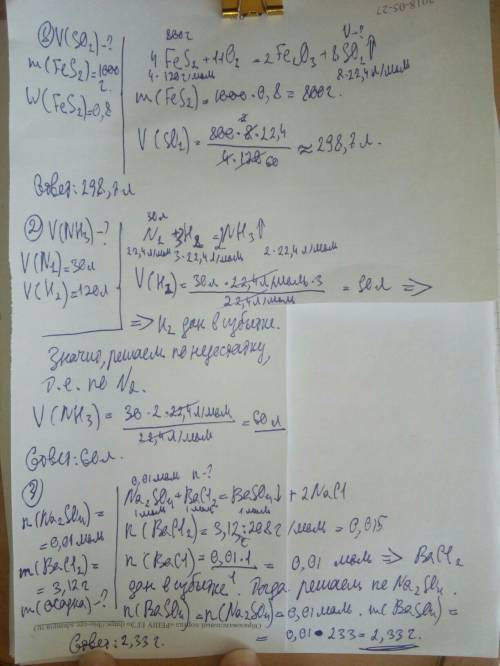 ③ V(SO₂)-?
m(FeS₂)=1000 г.
W(FeS₂)=0,8
800г V-?
4FeS₂+11O₂=2Fe₂O₃+8SO₂↑
4·120г/моль 8·22,4 л/моль
m(FeS₂)=1000·0,8=800г.
V(SO₂)=800·8·22,4/4·120 ≈298,7л.
Ответ: 298,7л
② V(NH₃)-?
V(N₂)=30л
V(H₂)=120л
30л
N₂+3H₂=2NH₃↑
22,4л/моль 3·22,4л/моль 2·22,4л/моль
V(H₂)=30л·22,4л/моль·3/22,4л/моль=90л =>
=> H₂ дан в избытке.
Значит, решаем по недостатку,
т.е. по N₂.
V(NH₃)=30·2·22,4л/моль/22,4л/моль=60л
Ответ: 60л.
③
n(Na₂SO₄)=
=0,01моль
m(BaCl₂)=
=3,12г
m(осадка)-?
0,01моль n-?
Na₂SO₄+BaCl₂=BaSO₄↓+2NaCl
1моль 1моль 1моль
n(BaCl₂)=3,12г:208г/моль=0,015
n(BaCl)=0,01·1/1=0,01 моль => BaCl₂
дан в избытке. Тогда решаем по Na₂SO₄.
n(BaSO₄)=n(Na₂SO₄)=0,01моль. m(BaSO₄)=
=0,01·233=2,33г.
Ответ: 2,33г.
2018-05-27